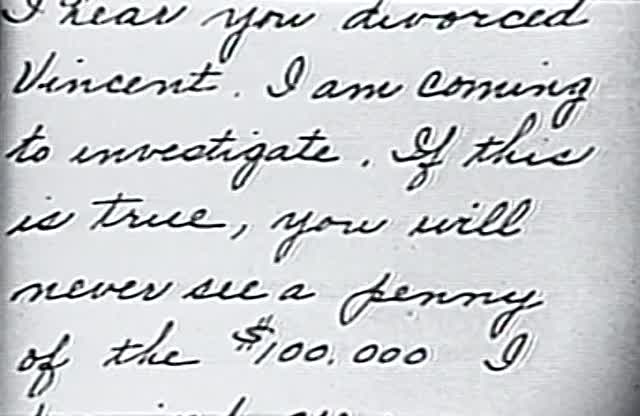 I hear you divorced
Vincent. I am coming
to investigate. If this
is true, you will
never see a penny
of the $100.000 I